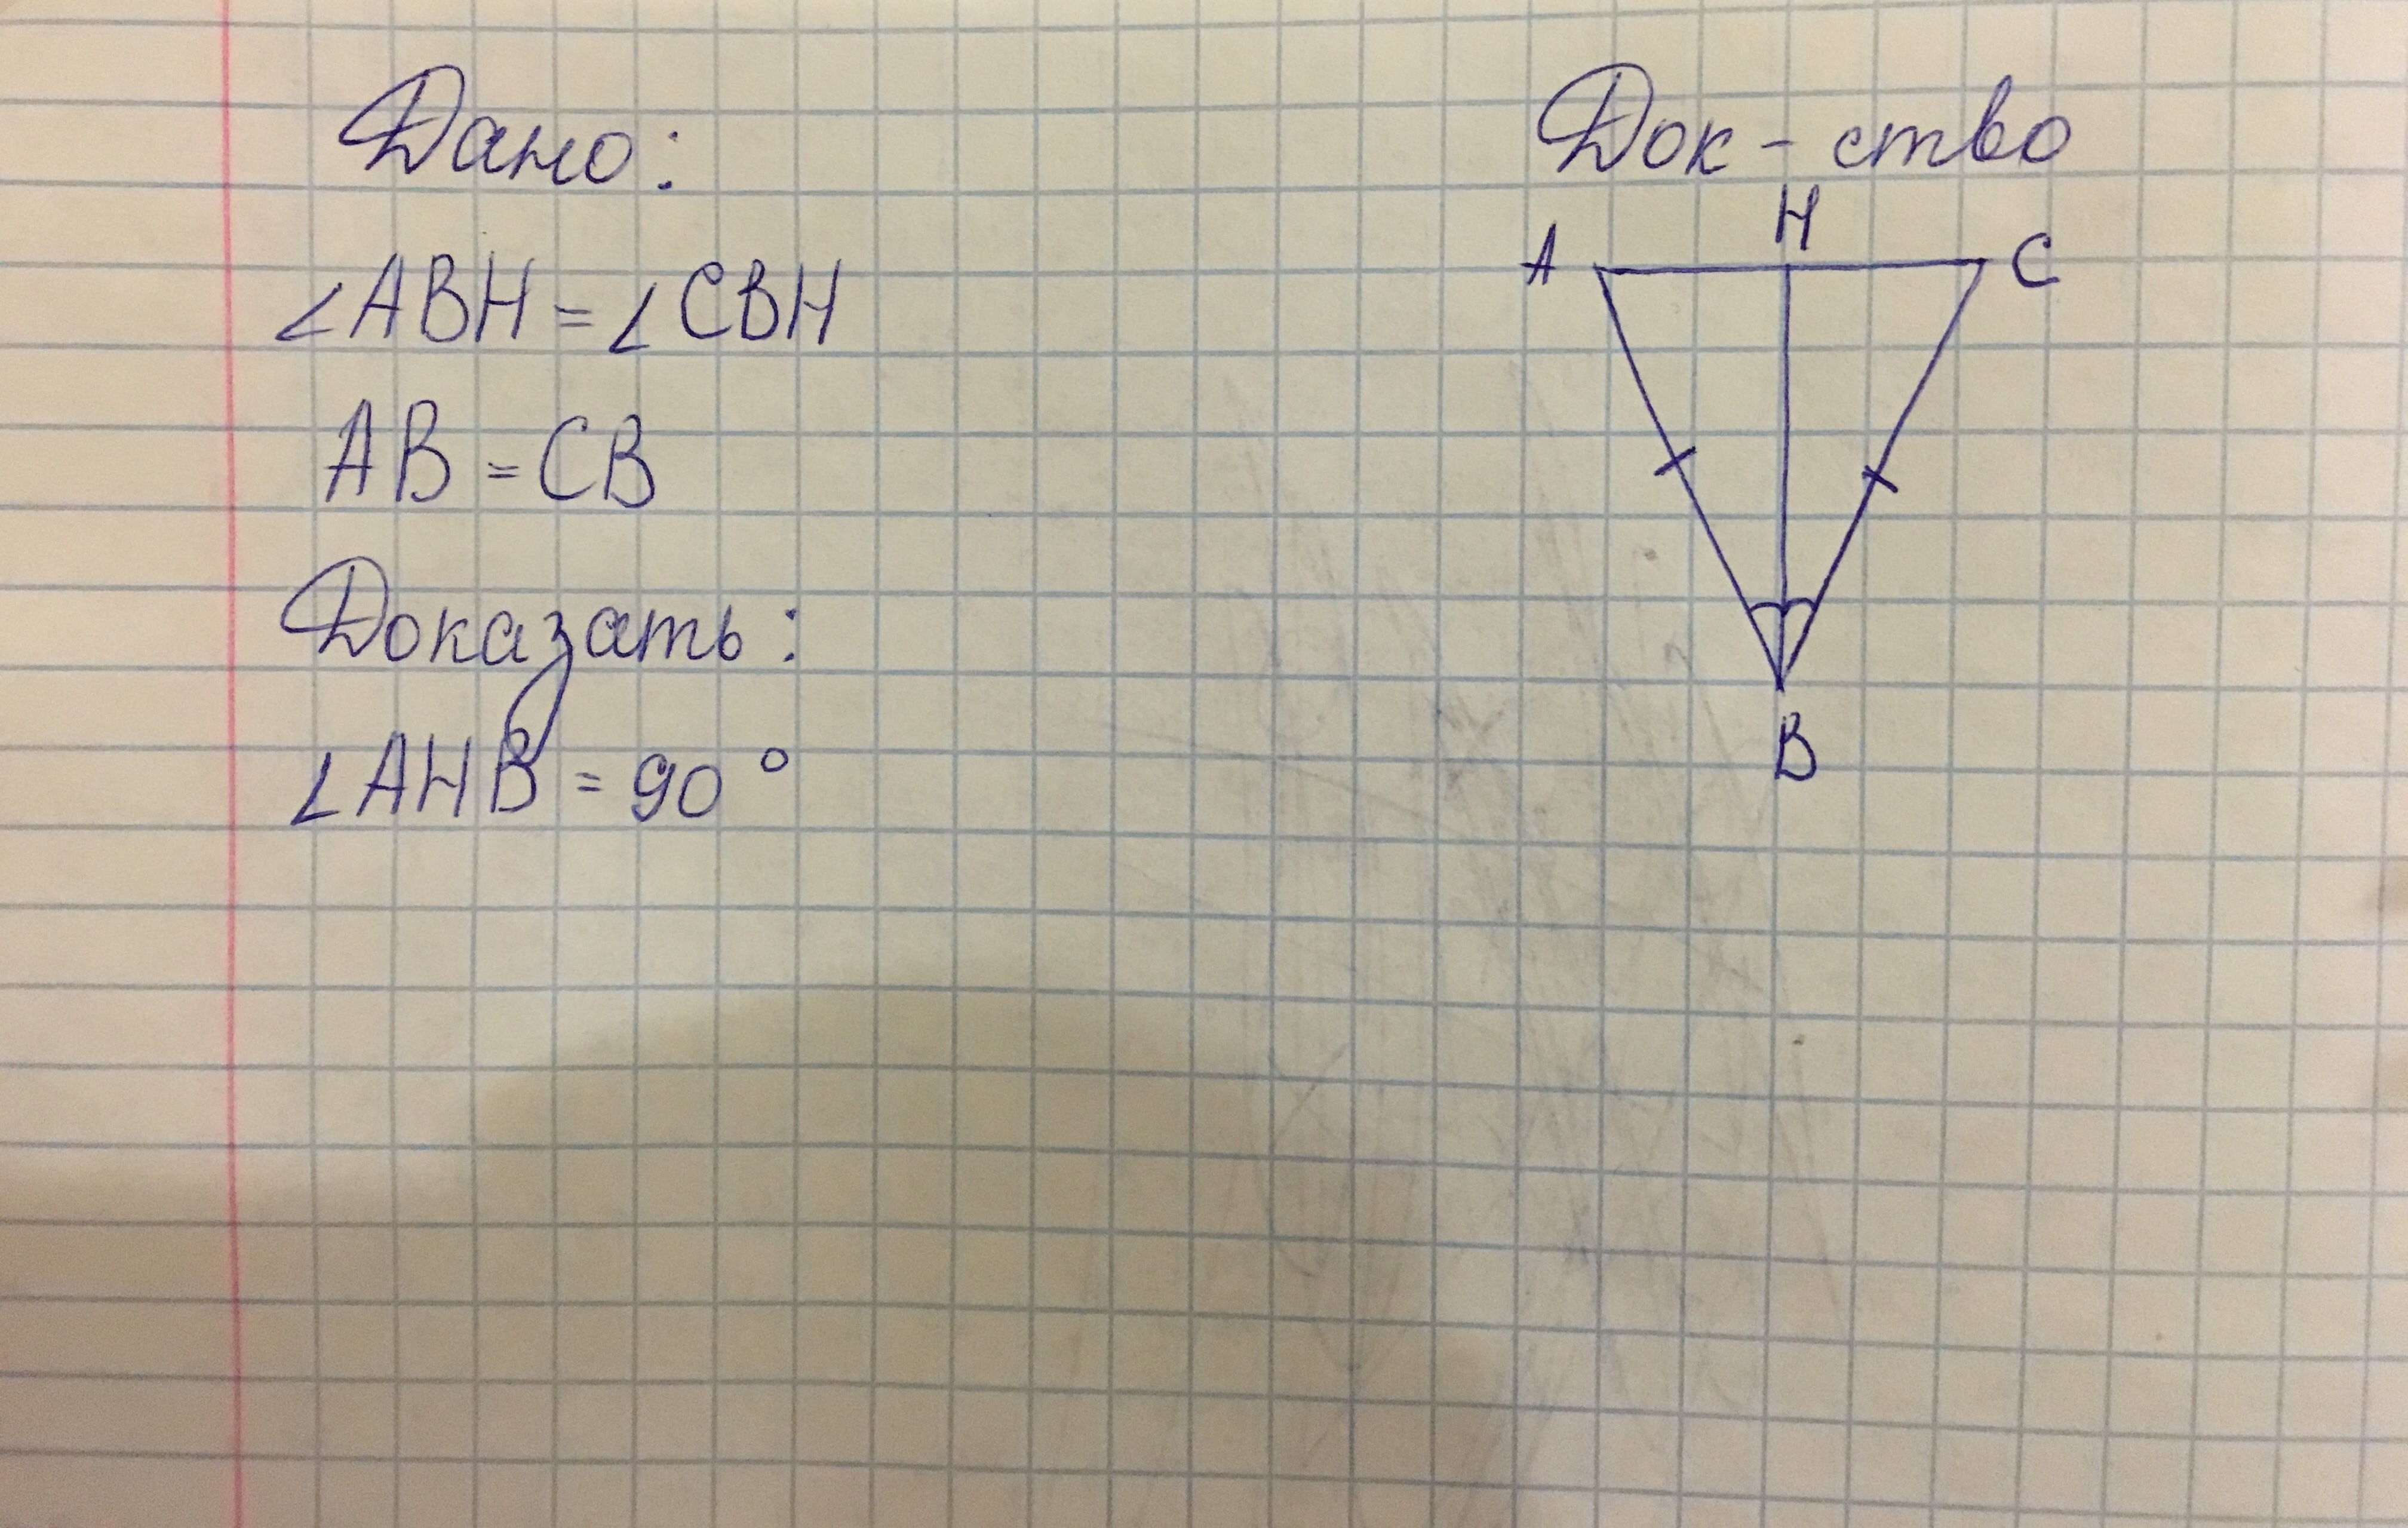 Дано:
∠ABH = ∠CBH
AB = CB
Доказать:
∠AHB = 90°
Док-ство
H
A C
B